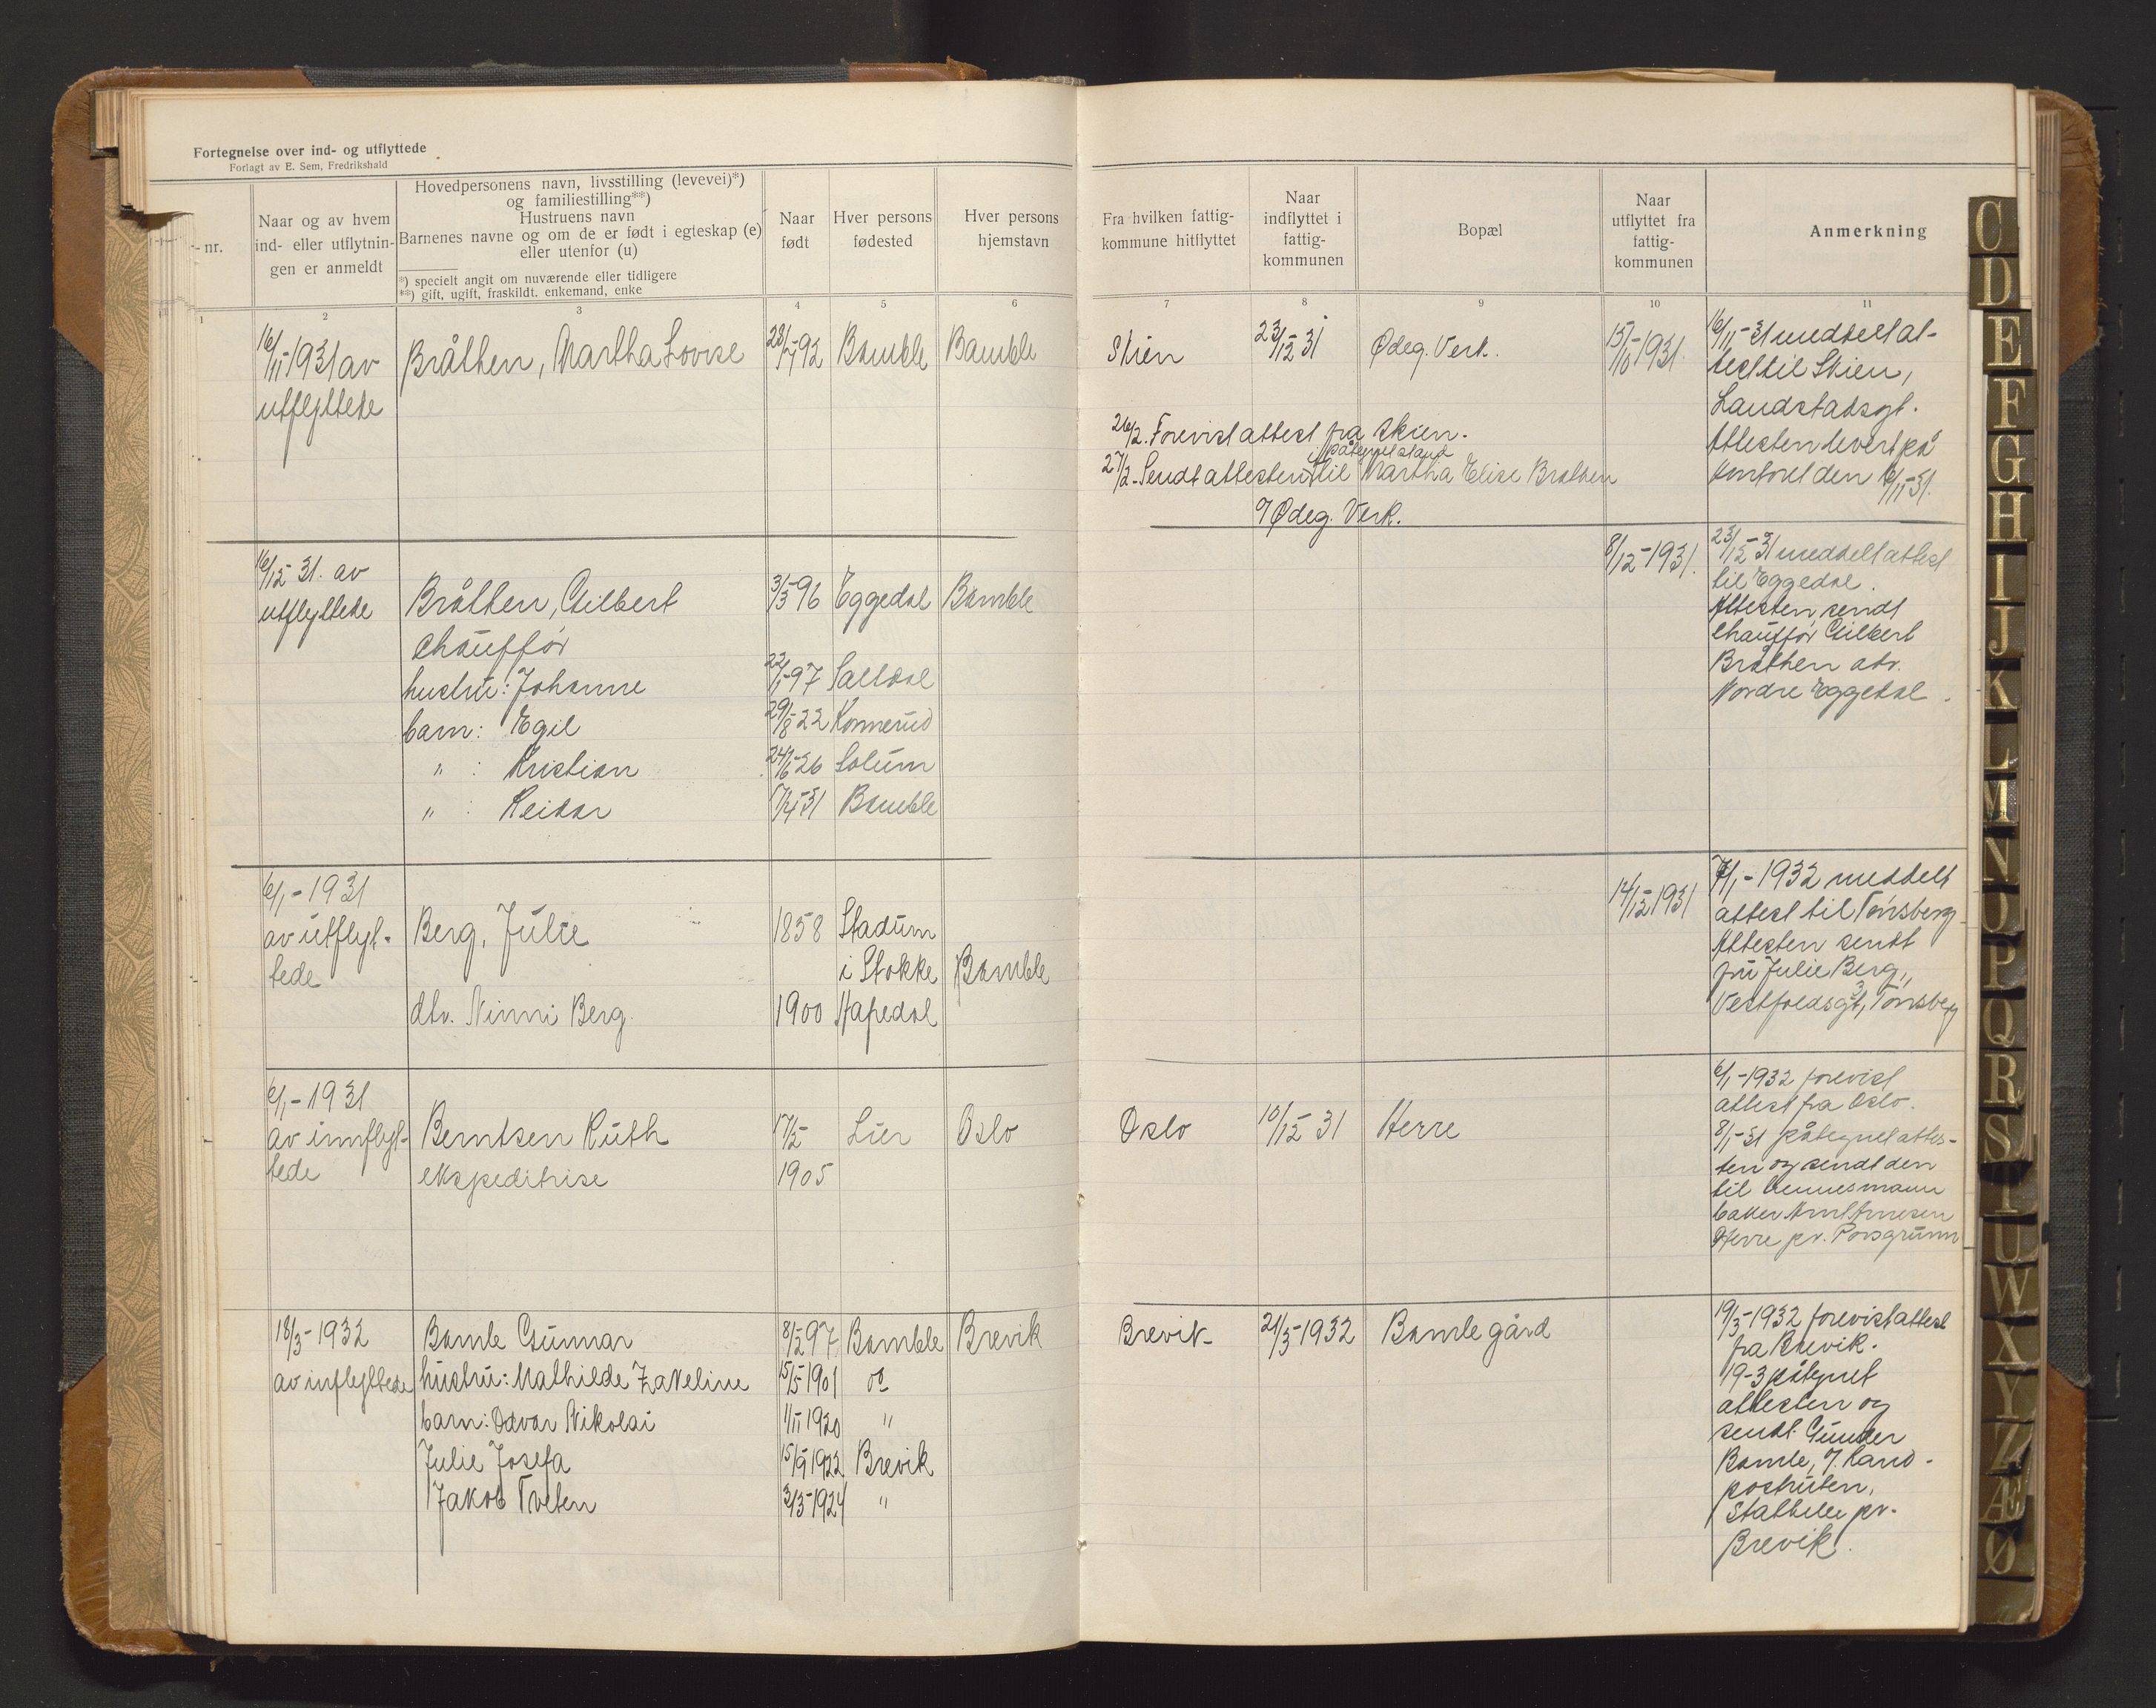 Fortegnelse over ind- og utflyttede
Forlagt av E. Sem, Fredrikshald
nr.
Naar og av hvem
ind- eller utflytnin-
gen er anmeldt
Hovedpersonens navn, livsstilling (levevei)*)
og familiestilling**)
Hustruens navn
Barnenes navne og om de er født i egteskap (e)
eller utenfor (u)
*) specielt angit om nuværende eller tidligere
**) gift, ugift, fraskildt, enkemand, enke
Naar
født
Hver persons
fødested
Hver persons
hjemstavn
Fra hvilken fattig-
kommune hitflyttet
Naar
indflyttet i
fattig-
kommunen
Bopæl
Naar
utflyttet fra
fattig-
kommunen
Anmerkning
1 2 3 4 5 6 7 8 9 10 11
16/11-1931 av
utflyttede
Bråthen, Martha Lovise
Bamble
Bamble
Skien
23/12 31
Ødeg. Verk.
15/10-1931.
16/11-31 meddelt at-
test til Skien,
Landstadsgt.
Attesten levert på
kontoret den 16/11-31.
26/2. Forevist attest fra Skien.
27/2. Sendt attesten i påtegnet stand til Martha Elise Bråthen
Ødeg. Verk.
16/12-31. av
utflyttede
Bråthen, Gilbert
chauffør
hustru: Johanne
barn: Egil
" : Kristian
" : Reidar
3/3-96
22/1-97
29/8-22
24/6-26
17/4-31
Eggedal
Saltdal
Konnerud
Solum
Bamble
Bamble
8/12-1931.
23/12-31 meddelt attest
til Eggedal.
Attesten sendt
chauffør Gilbert
Bråthen adr.
Nordre Eggedal.
6/1-1931
av utflyt-
tede
Berg, Julie
dtr. Ninni Berg.
1858
1900
Stadum
i Stokke
Hapedal
Bamble
14/12 1931
7/1-1932 meddelt
attest til Tønsberg
Attesten sendt
fru Julie Berg,
Vestfoldsgt, 3 Tønsberg
6/1-1931
av innflyt-
tede
Berntsen Ruth
ekspeditrise
17/5-
1905
Lier
Oslo
Oslo
10/12 31
Herre
6/1-1932 forevist
attest fra Oslo.
8/1-31 påtegnet attes-
ten og sendt den
til
baker
Herre pr. Porsgrunn
18/3-1932
av inflyttede
Bamle Gunnar
hustru: Mathilde Zakeline
barn: Odvar Nikolai
Julie Josefa
Jakob Tveten
15/5-1901
1/11 1920
15/9 1922
2/3-1924
Bamble
do
"
Brevik
"
Brevik
Brevik
21/3-1932
Bamle gård
19/3-1932 forevist attest
fra Brevik.
19-3 påtegnet
attesten og
sendt Gunder
Bamle, Land-
postruten,
Stathelle pr.
Brevik.
C
D
E
F
G
H
I
J
K
L
M
N
O
P
Q
R
S
T
U
W
X
Y
Z
Æ
Ø